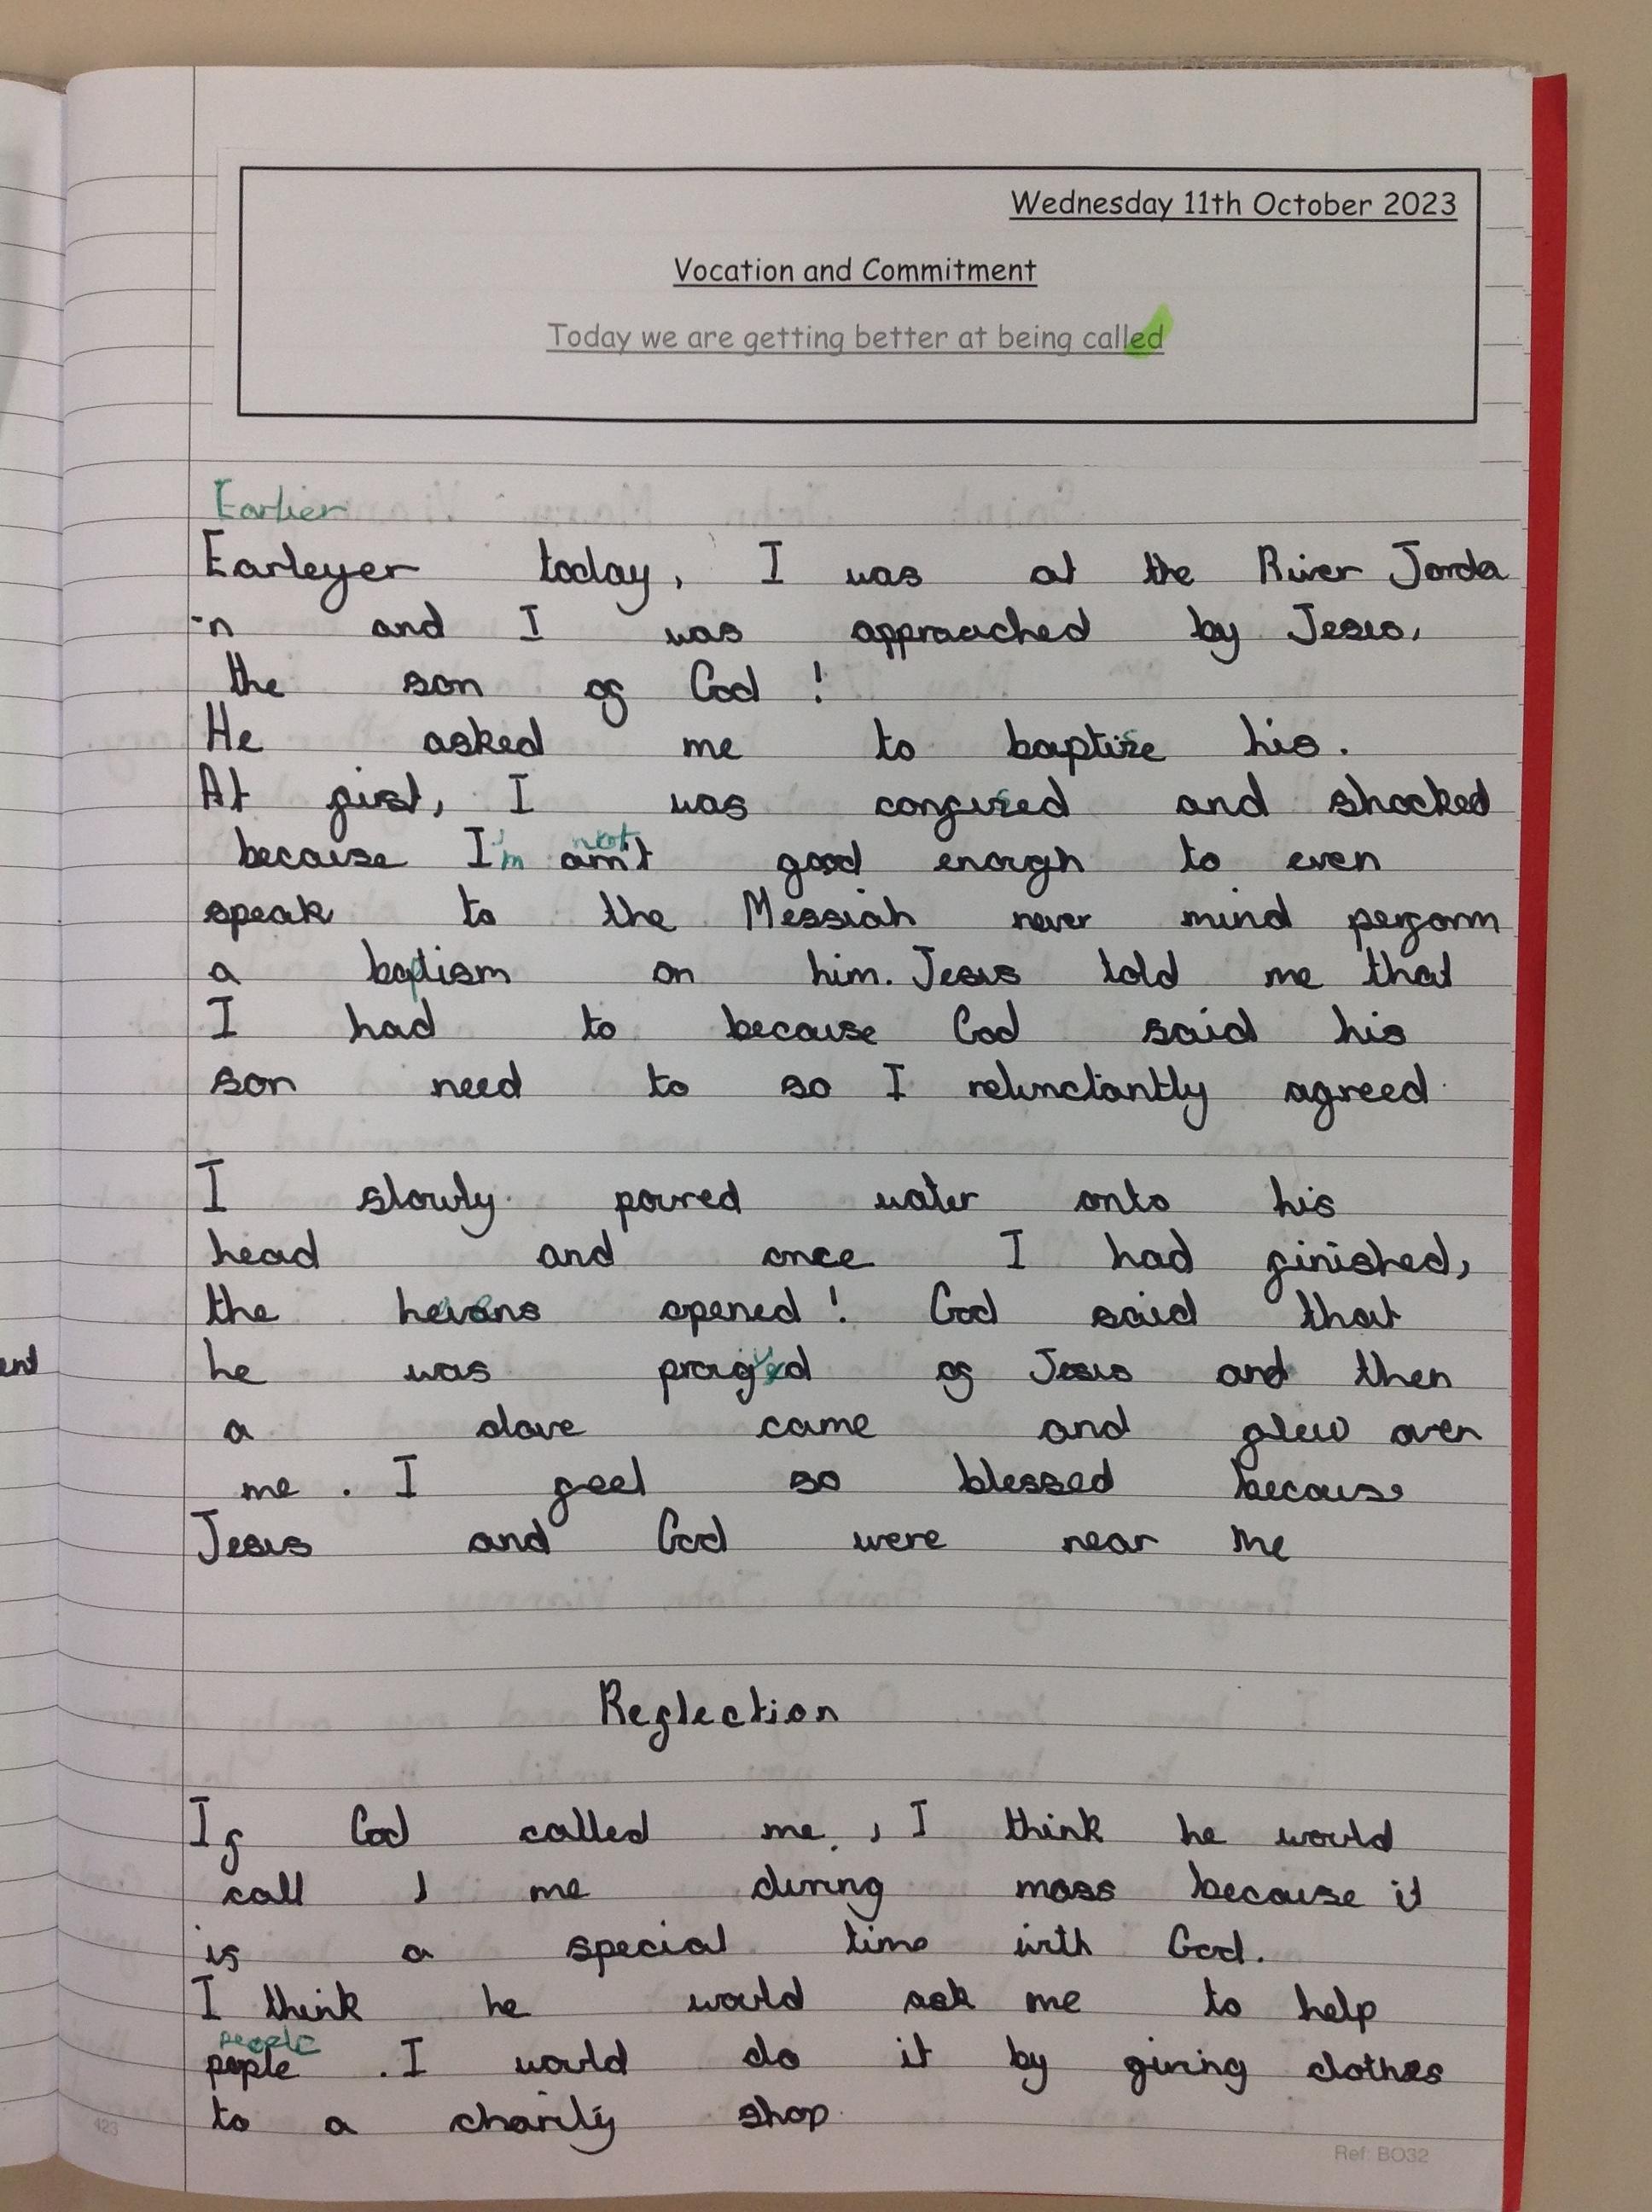 Wednesday 11th October 2023
Vocation and Commitment
Today we are getting better at being called
Earlier
Earleyer today, I was at the River Jorda
-n and I was approached by Jesus,
the son of God !
He asked me to baptise his.
At first, I was confused and shocked
not
because I'm amn't good enough to even
speak to the Messiah never mind perform
a baptism on him. Jesus told me that
I had to because God said his
son need to so I relunctantly agreed.
I slowly poured water onto his
head and once I had finished,
the opened ! God said that
he was of Jesus and then
a dove came and flew over
me . I feel so blessed because
Jesus and God were near me
Reflection
If God called me , I think he would
call me during mass because it
is a special time with God.
I think he would ask me to help
people
pople . I would do it by giving clothes
to a charity shop.
ent
423
Ref: BO32